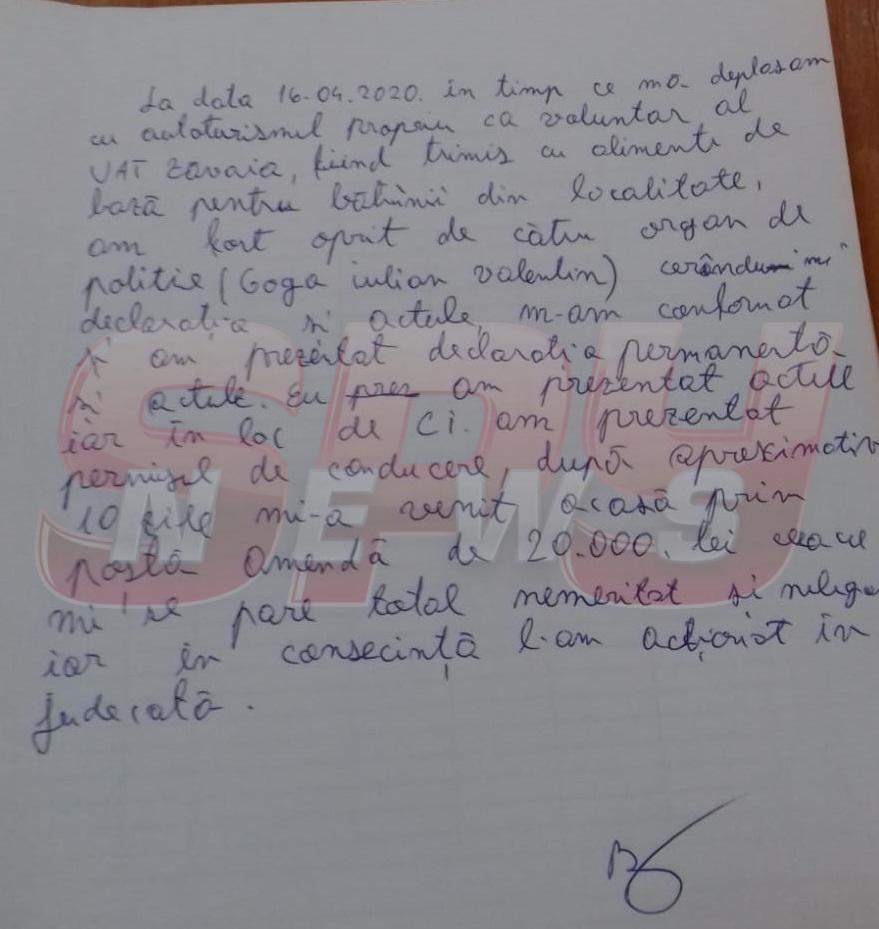 La data 16.04.2020. în timp ce mă deplasam
cu autoturismul propriu ca voluntar al
UAT Zavaia, fiind trimis cu alimente de
bază pentru bătrînii din localitate,
am fost oprit de către organ de
politie (Goga iulian Valentin) cerându mi
declarația și actele, m-am conformat
și am prezentat declaratia permanentă
și actele. Eu prez am prezentat actele
iar în loc de Ci. am prezentat
permisul de conducere, după aproximativ
10 zile mi-a venit acasă prin
postă amendă de 20.000. lei ceea ce
mi se pare total nemeritat si nelega
iar în consecință l-am acționat în
judecată.
SPY
NEWS